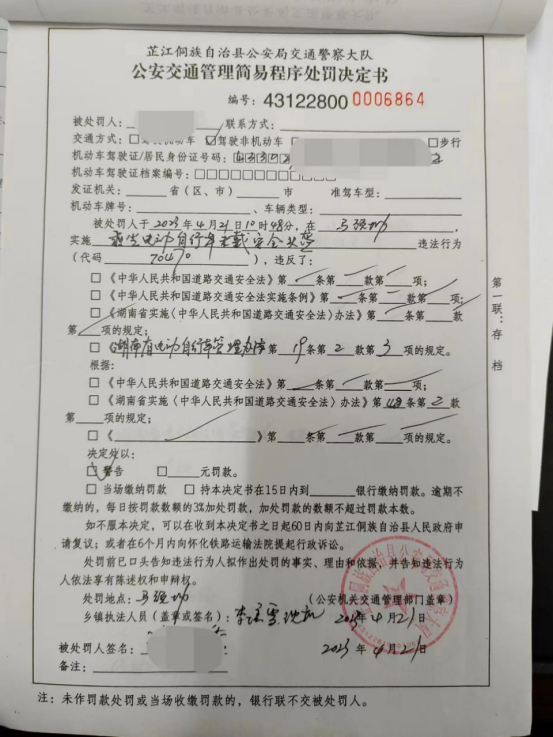 芷江侗族自治县公安局交通警察大队
公安交通管理简易程序处罚决定书
编号：43122800 0006864
被处罚人： 联系方式：
交通方式：□驾驶机动车 ☑驾驶非机动车 □步行
机动车驾驶证/居民身份证号码：
机动车驾驶证档案编号：□□□□□□□□□□□□
发证机关：____省（区、市）____市 准驾车型：
机动车牌号：____、车辆类型：____
被处罚人于2023年4月21日10时48分，在
实施 乘坐电动自行车未戴安全头盔 违法行为
（代码 70470 ），违反了：
□《中华人民共和国道路交通安全法》第__条第__款第__项；
□《中华人民共和国道路交通安全法实施条例》第__条第__款第__项；
□《湖南省实施〈中华人民共和国道路交通安全法〉办法》第__条第__款
第__项的规定；
□《湖南省电动自行车管理办法》第19条第2款第3项的规定。
根据：
□《中华人民共和国道路交通安全法》第__条第__款第__项；
□《湖南省实施〈中华人民共和国道路交通安全法〉办法》第48条第2款
第__项的规定；
□《____》第__条第__款第__项的规定。
决定处以：
☑警告 □____元罚款。
□ 当场缴纳罚款 □ 持本决定书在15日内到____银行缴纳罚款。逾期不
缴纳的，每日按罚款数额的3%加处罚款，加处罚款的数额不超过罚款本数。
如不服本决定，可以在收到本决定书之日起60日内向芷江侗族自治县人民政府申
请复议；或者在6个月内向怀化铁路运输法院提起行政诉讼。
处罚前已口头告知违法行为人拟作出处罚的事实、理由和依据，并告知违法行为
人依法享有陈述权和申辩权。
处罚地点： （公安机关交通管理部门盖章）
乡镇执法人员（盖章或签名）： 2023年4月21日
被处罚人签名： 2023年4月21日
备注：
注：未作罚款处罚或当场收缴罚款的，银行联不交被处罚人。
第一联：存档